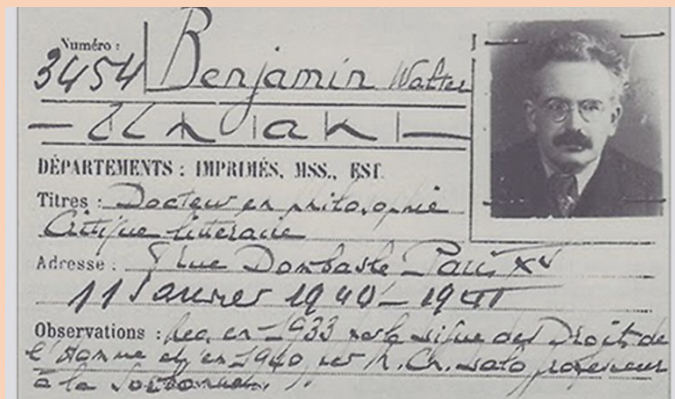 Numéro :
3454 Benjamin Walter
DÉPARTEMENTS : IMPRIMÉS, MSS., EST.
Titres : Docteur en philosophie
Critique littéraire
Adresse : rue Dombasle Paris XV
11 Janvier 1940 - 1941
Observations : Rec. en 1933 par la Ligue des Droits de
l'Homme et en 1940 par M. Ch. Lalo professeur
à la Sorbonne.